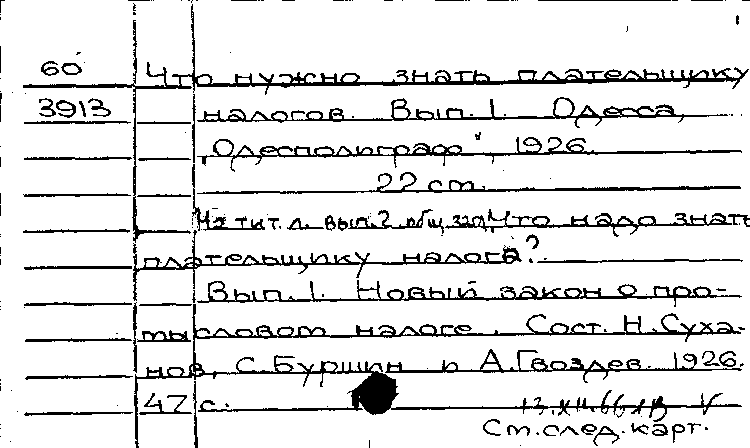 60 Что нужно знать плательщику
3913 налогов. Вып. I. Одесса,
"Одесполиграф", 1926.
22 ст.
На тит. л. вып. 2 общ. загл. Что надо знать
плательщику налога?
Вып. I. Новый закон о про-
мысловом налоге. Сост. Н. Суха-
нов, С. Буршин и А. Гвоздев. 1926.
47 с.
Ст. след. карт.